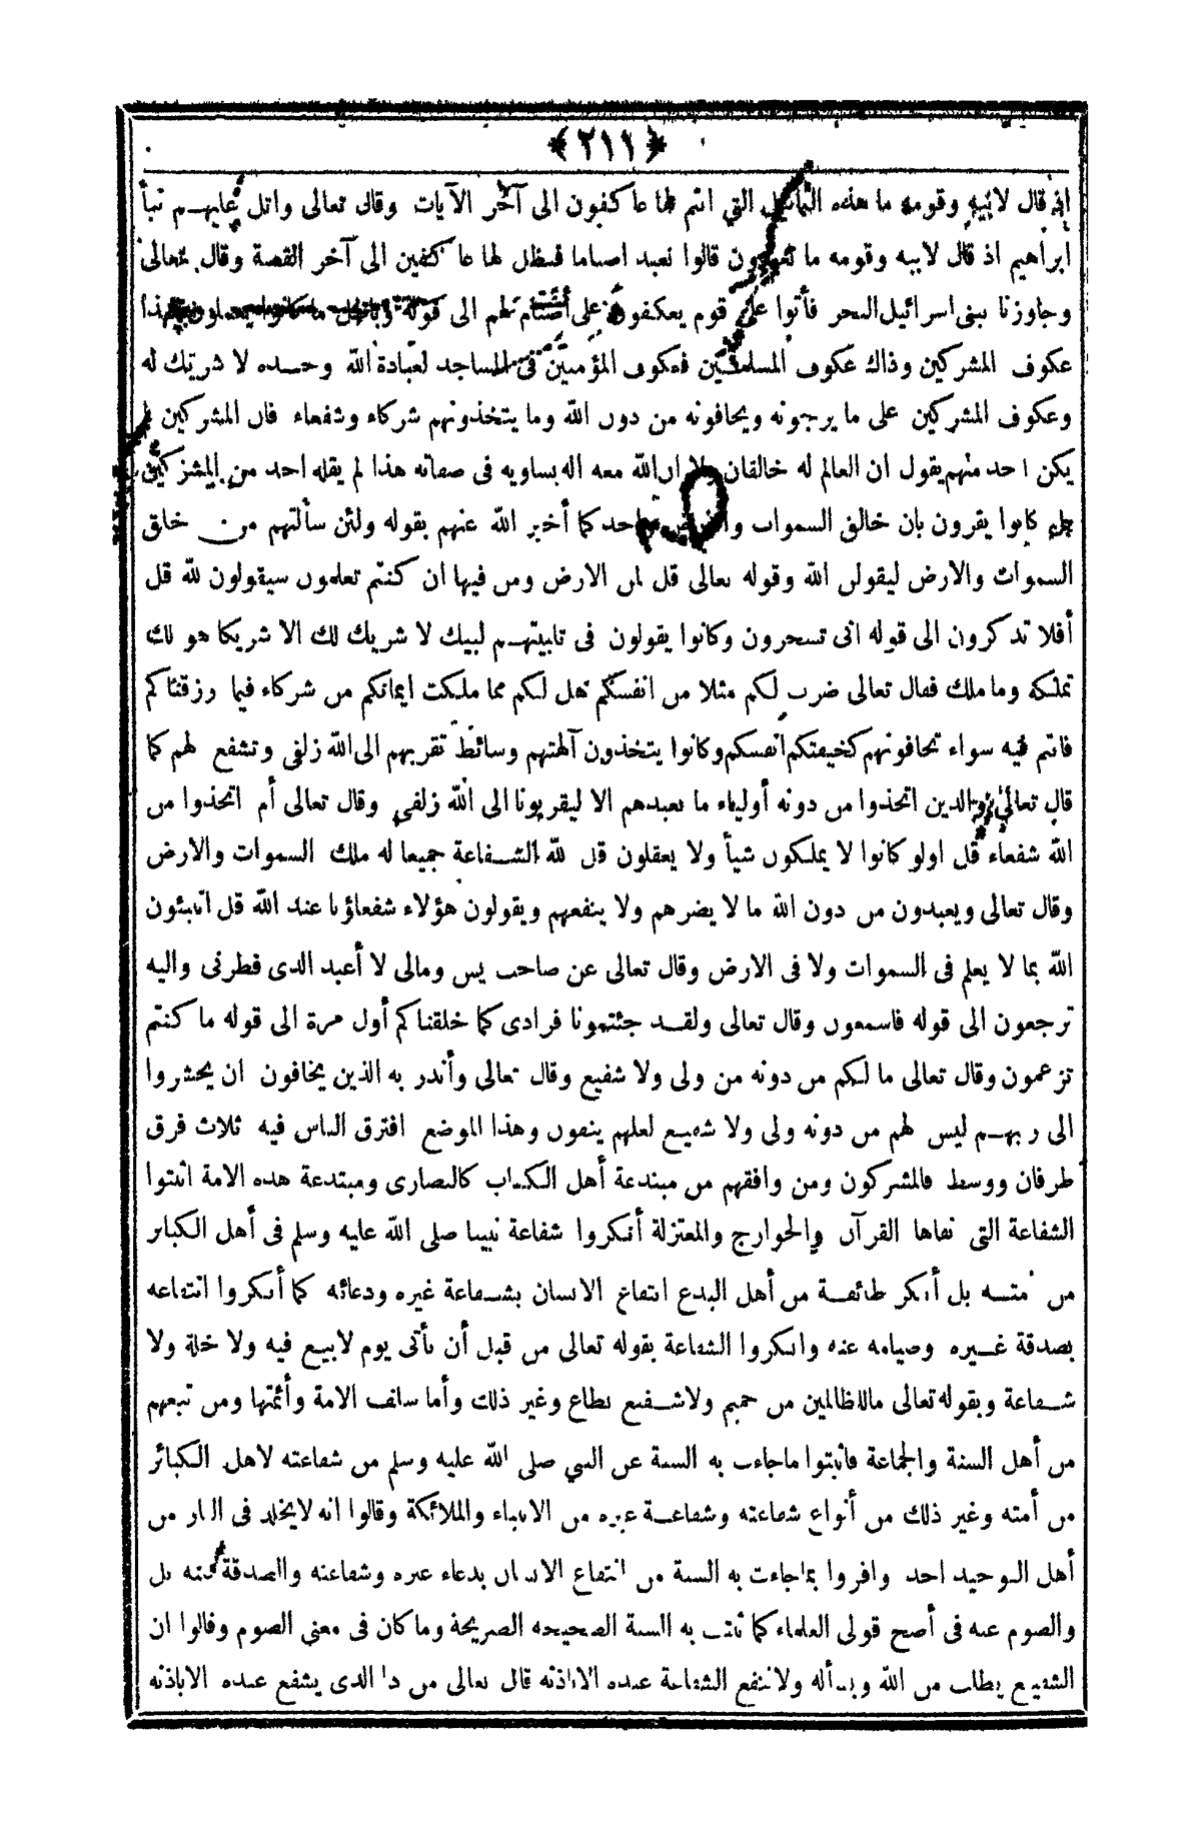 ﴿٢١١﴾
اذ قال لابيه وقومه ما هذه التماثيل التي انتم لها عاكفون الى آخر الآيات وقال تعالى واتل عليهم نبأ
ابراهيم اذ قال لابيه وقومه ما تعبدون قالوا نعبد اصناما فنظل لها عاكفين الى آخر القصة وقال تعالى
وجاوزنا ببنى اسرائيل البحر فأتوا على قوم يعكفون على أصنام لهم الى قوله وباطل ما كانوا يعملون فهذا
عكوف المشركين وذاك عكوف المسلمين فعكوف المؤمنين فى المساجد لعبادة الله وحده لا شريك له
وعكوف المشركين على ما يرجونه ويخافونه من دون الله وما يتخذونهم شركاء وشفعاء فان المشركين لم
يكن احد منهم يقول ان العالم له خالقان ولا ان الله معه اله يساويه فى صفاته هذا لم يقله احد من المشركين
بل كانوا يقرون بان خالق السموات والارض واحد كما أخبر الله عنهم بقوله ولئن سألتهم من خلق
السموات والارض ليقولن الله وقوله تعالى قل لمن الارض ومن فيها ان كنتم تعلمون سيقولون لله قل
أفلا تذكرون الى قوله انى تسحرون وكانوا يقولون فى تلبيتهم لبيك لا شريك لك الا شريكا هو لك
تملكه وما ملك فقال تعالى ضرب لكم مثلا من انفسكم هل لكم مما ملكت ايمانكم من شركاء فيما رزقناكم
فانتم فيه سواء تخافونهم كخيفتكم انفسكم وكانوا يتخذون آلهتهم وسائط تقربهم الى الله زلفى وتشفع لهم كما
قال تعالى والذين اتخذوا من دونه أولياء ما نعبدهم الا ليقربونا الى الله زلفى وقال تعالى أم اتخذوا من
الله شفعاء قل اولو كانوا لا يملكون شيأ ولا يعقلون قل لله الشفاعة جميعا له ملك السموات والارض
وقال تعالى ويعبدون من دون الله ما لا يضرهم ولا ينفعهم ويقولون هؤلاء شفعاؤنا عند الله قل اتنبئون
الله بما لا يعلم فى السموات ولا فى الارض وقال تعالى عن صاحب يس ومالى لا أعبد الذى فطرنى واليه
ترجعون الى قوله فاسمعون وقال تعالى ولقد جئتمونا فرادى كما خلقناكم أول مرة الى قوله ما كنتم
تزعمون وقال تعالى ما لكم من دونه من ولى ولا شفيع وقال تعالى وأنذر به الذين يخافون ان يحشروا
الى ربهم ليس لهم من دونه ولى ولا شفيع لعلهم يتقون وهذا الموضع افترق الناس فيه ثلاث فرق
طرفان ووسط فالمشركون ومن وافقهم من مبتدعة أهل الكتاب كالنصارى ومبتدعة هذه الامة اثبتوا
الشفاعة التى نفاها القرآن والخوارج والمعتزلة أنكروا شفاعة نبينا صلى الله عليه وسلم فى أهل الكبائر
من امته بل أنكر طائفة من أهل البدع انتفاع الانسان بشفاعة غيره ودعائه كما أنكروا انتفاعه
بصدقة غيره وصيامه عنه وانكروا الشفاعة بقوله تعالى من قبل أن يأتى يوم لا بيع فيه ولا خلة ولا
شفاعة وبقوله تعالى ما للظالمين من حميم ولا شفيع يطاع وغير ذلك وأما سلف الامة وأئمتها ومن تبعهم
من أهل السنة والجماعة فاثبتوا ما جاءت به السنة عن النبي صلى الله عليه وسلم من شفاعته لاهل الكبائر
من أمته وغير ذلك من أنواع شفاعته وشفاعة غيره من الانبياء والملائكة وقالوا انه لا يخلد فى النار من
أهل التوحيد احد واقروا بما جاءت به السنة من انتفاع الانسان بدعاء غيره وشفاعته والصدقة عنه بل
والصوم عنه فى أصح قولى العلماء كما ثبتت به السنة الصحيحة الصريحة وما كان فى معنى الصوم وقالوا ان
الشفيع يطلب من الله ويسأله ولا تنفع الشفاعة عنده الا باذنه قال تعالى من ذا الذى يشفع عنده الا باذنه